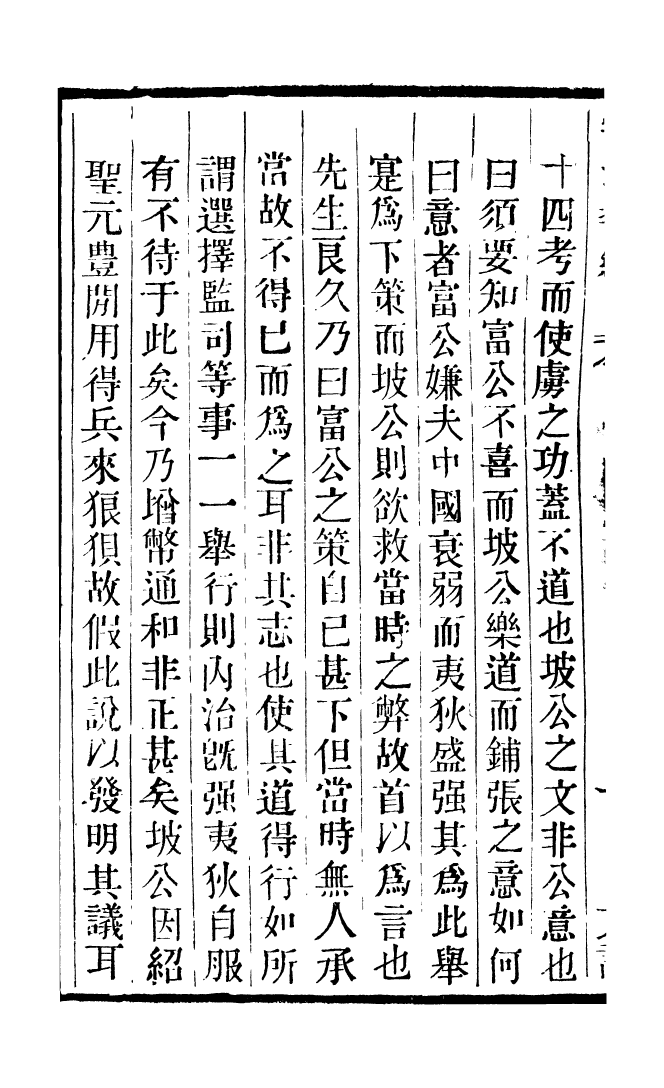 十四考而使虜之功蓋不道也坡公之文非公意也
曰須要知富公不喜而坡公樂道而鋪張之意如何
曰意者富公嫌夫中國衰弱而夷狄盛强其爲此舉
寔爲下策而坡公則欲救當時之弊故首以爲言也
先生良久乃曰富公之策自已甚下但當時無人承
當故不得已而爲之耳非其志也使其道得行如所
謂選擇監司等事一一舉行則内治旣强夷狄自服
有不待于此矣今乃增幣通和非正甚矣坡公因紹
聖元豊間用得兵來狼狽故假此說以發明其議耳